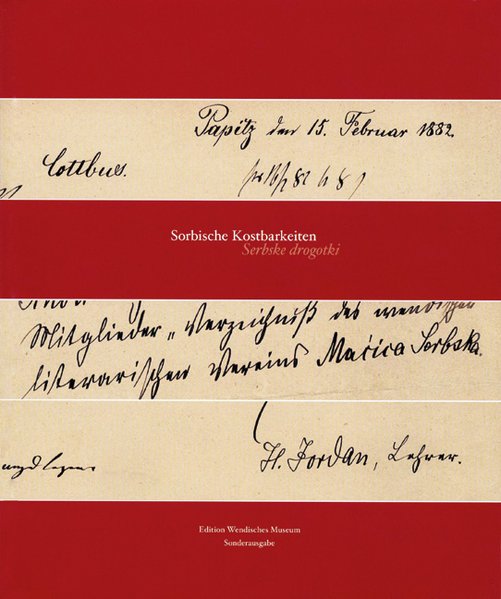 Papitz den 15. Februar 1882.
Cottbus.
Sorbische Kostbarkeiten
Serbske drogotki
Mitglieder „Verzeichniß des wendischen
literarischen Vereins Maćica Serbska.
H. Jordan, Lehrer.
Edition Wendisches Museum
Sonderausgabe